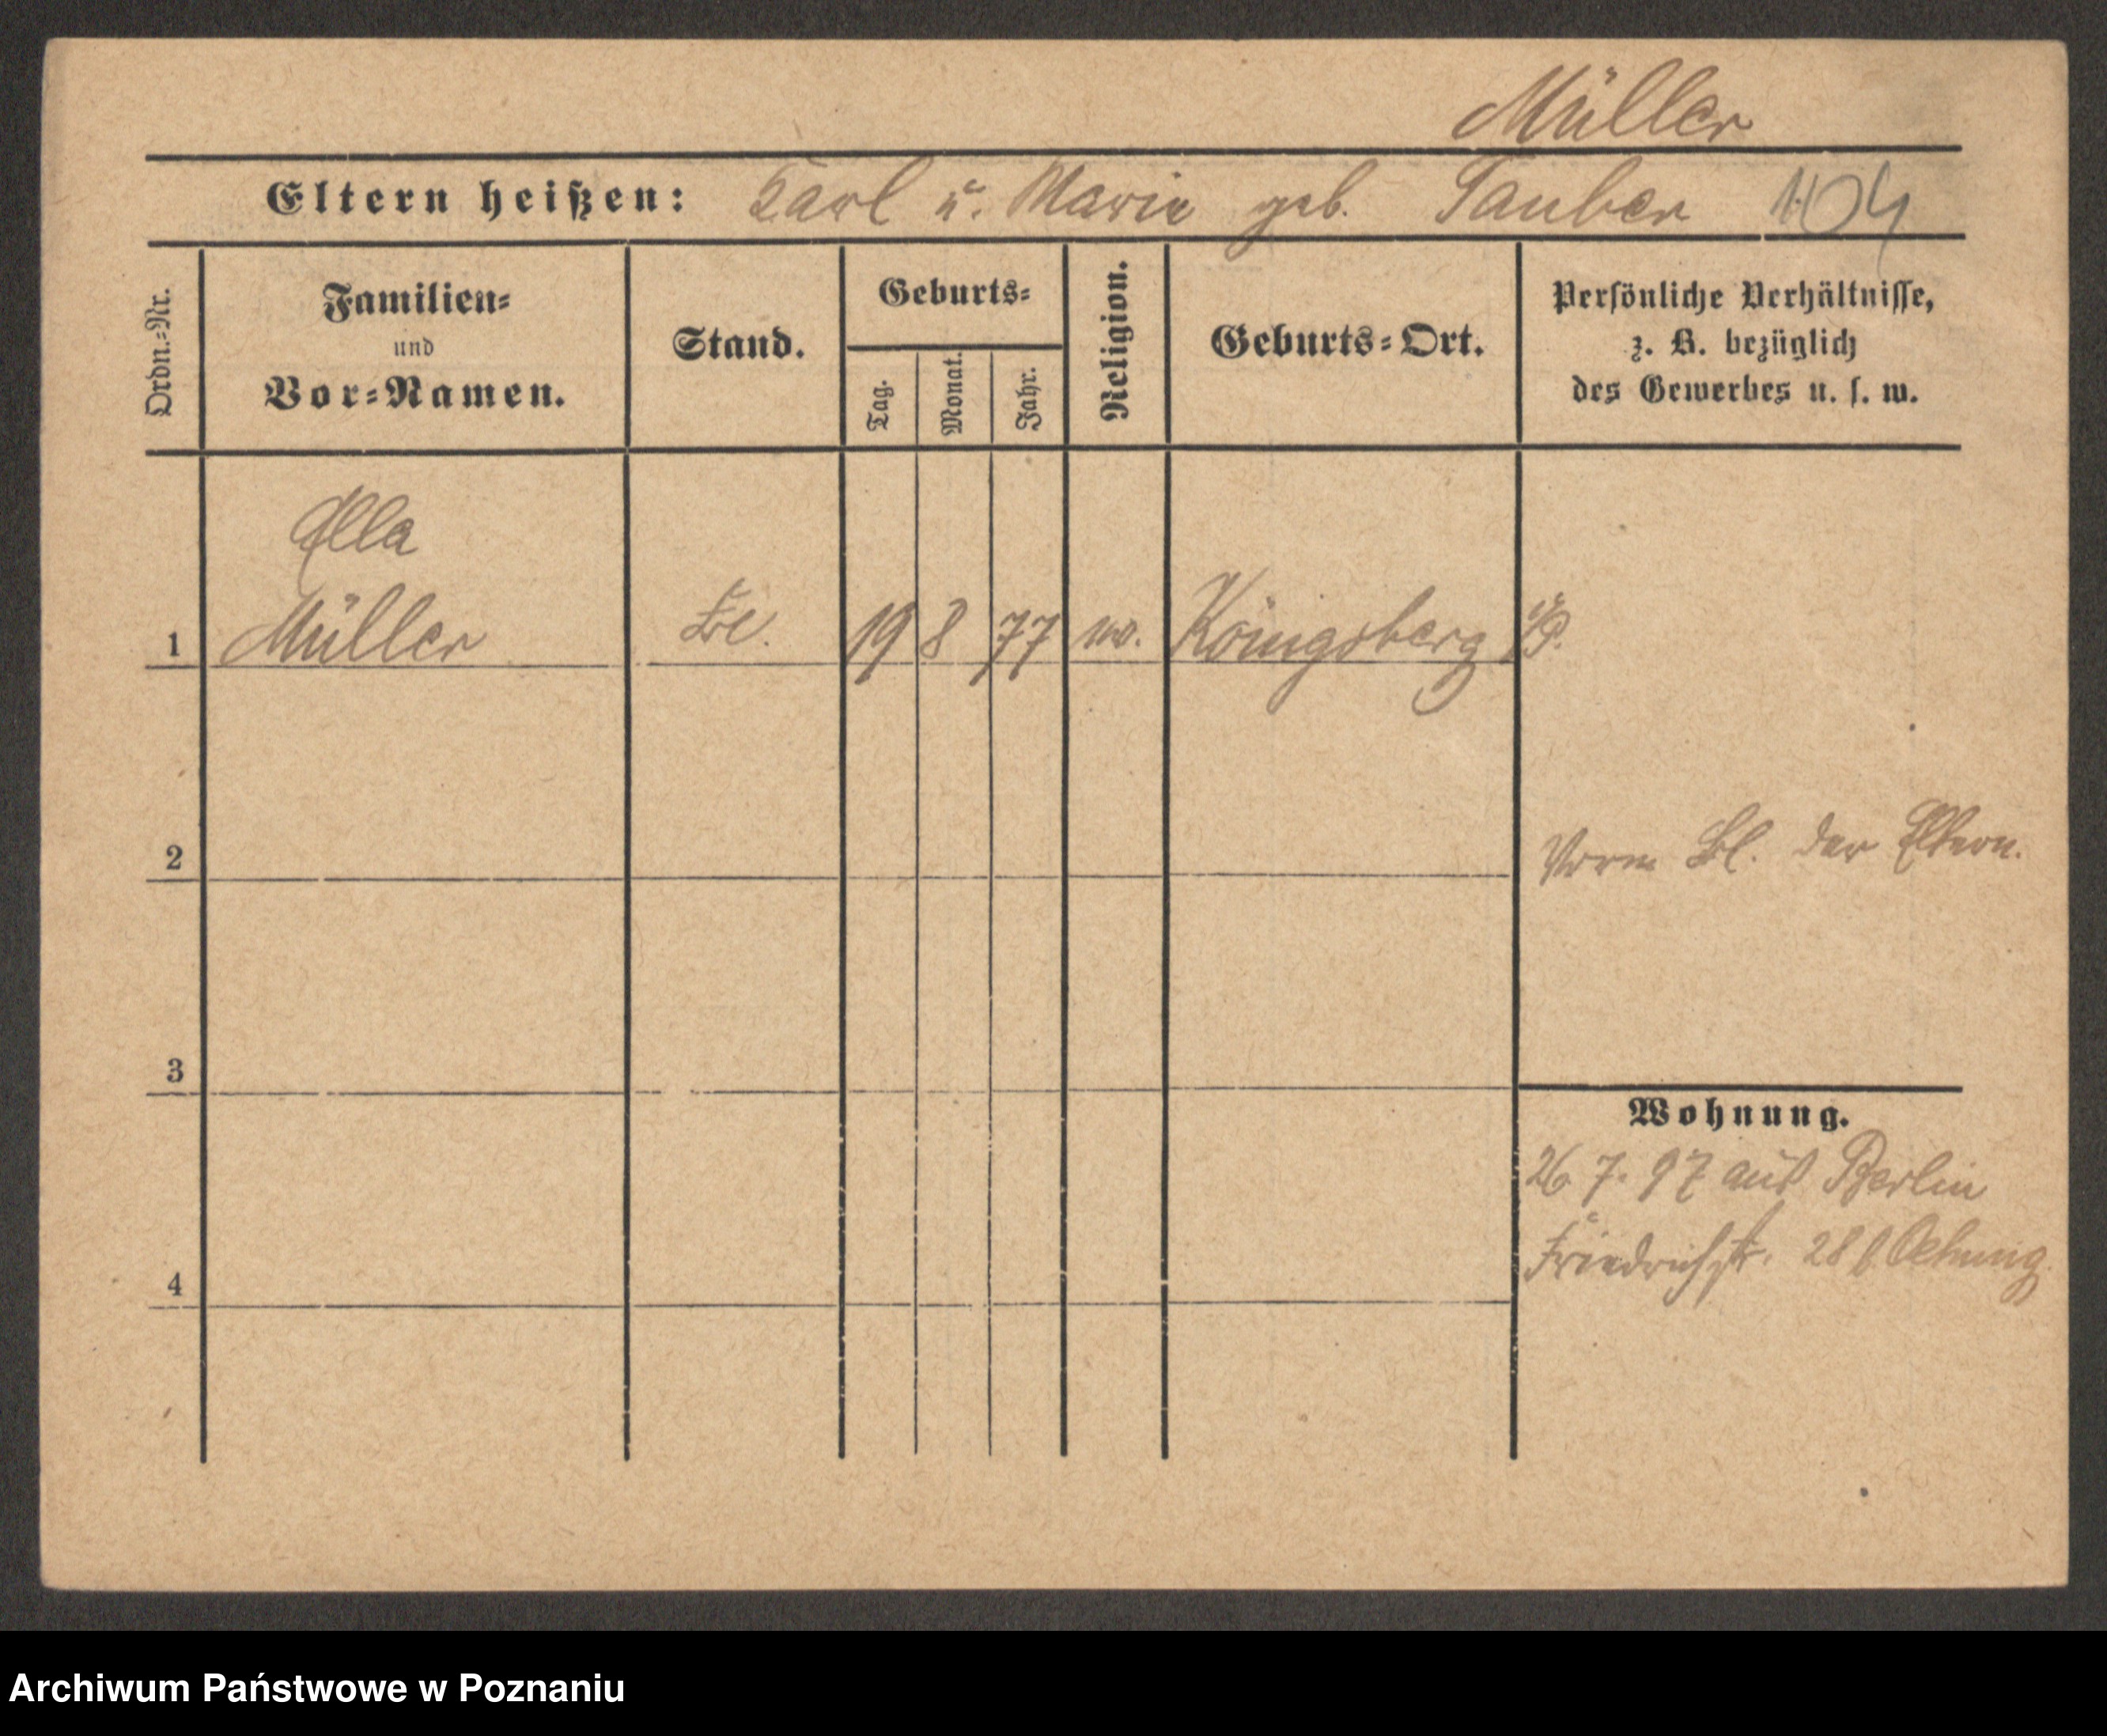 Müller
Eltern heißen: Karl u. Marie geb. Tauber 104
Ordn.-Nr.
Familien-
und
Vor-Namen.
Stand.
Geburts-
Tag.
Monat.
Jahr.
Religion.
Geburts-Ort.
Persönliche Verhältnisse,
z. B. bezüglich
des Gewerbes u. s. w.
Ella
1 Müller 19 8 77 Königsberg
2 der Eltern.
3
Wohnung.
26 7. 97 aus Berlin
Friedrichstr. 28
4
Archiwum Państwowe w Poznaniu